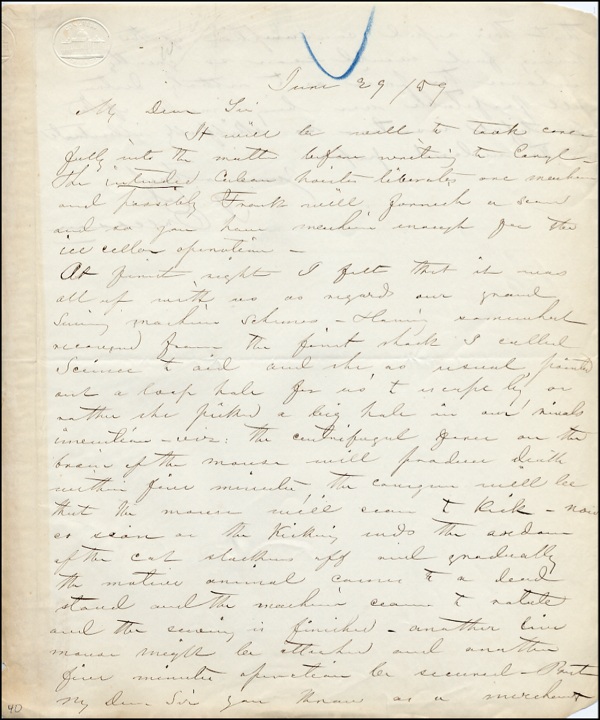 June 29 /59
My Dear Sir
It will be well to look care-
fully into the matter before writing to Congl-
The intended Cuban hoister liberates one machine
and possibly Frank will furnish a second
and so you have machine enough for the
ice cellar operation -
At first sight I felt that it was
all up with us as regard our grand
Sewing machine schemes - Having somewhat
recovered from the first shock I called
Science to aid and she as usual, pointed
out a loop hole for us to escape by, or
rather she picked a big hole in our rivals
invention - viz: the centrifugal force on the
brain of the mouse will produce death
within five minutes, the consequence will be
that the mouse will cease to Kick - now
as soon as the Kicking ends the ardor
of the cat slackens off and gradually
the motive animal comes to a dead
stand and the machine ceases to rotate
and the sewing is finished - another live
mouse might be attached and another
five minutes operation be secured - But
My dear Sir you know as a merchant
40